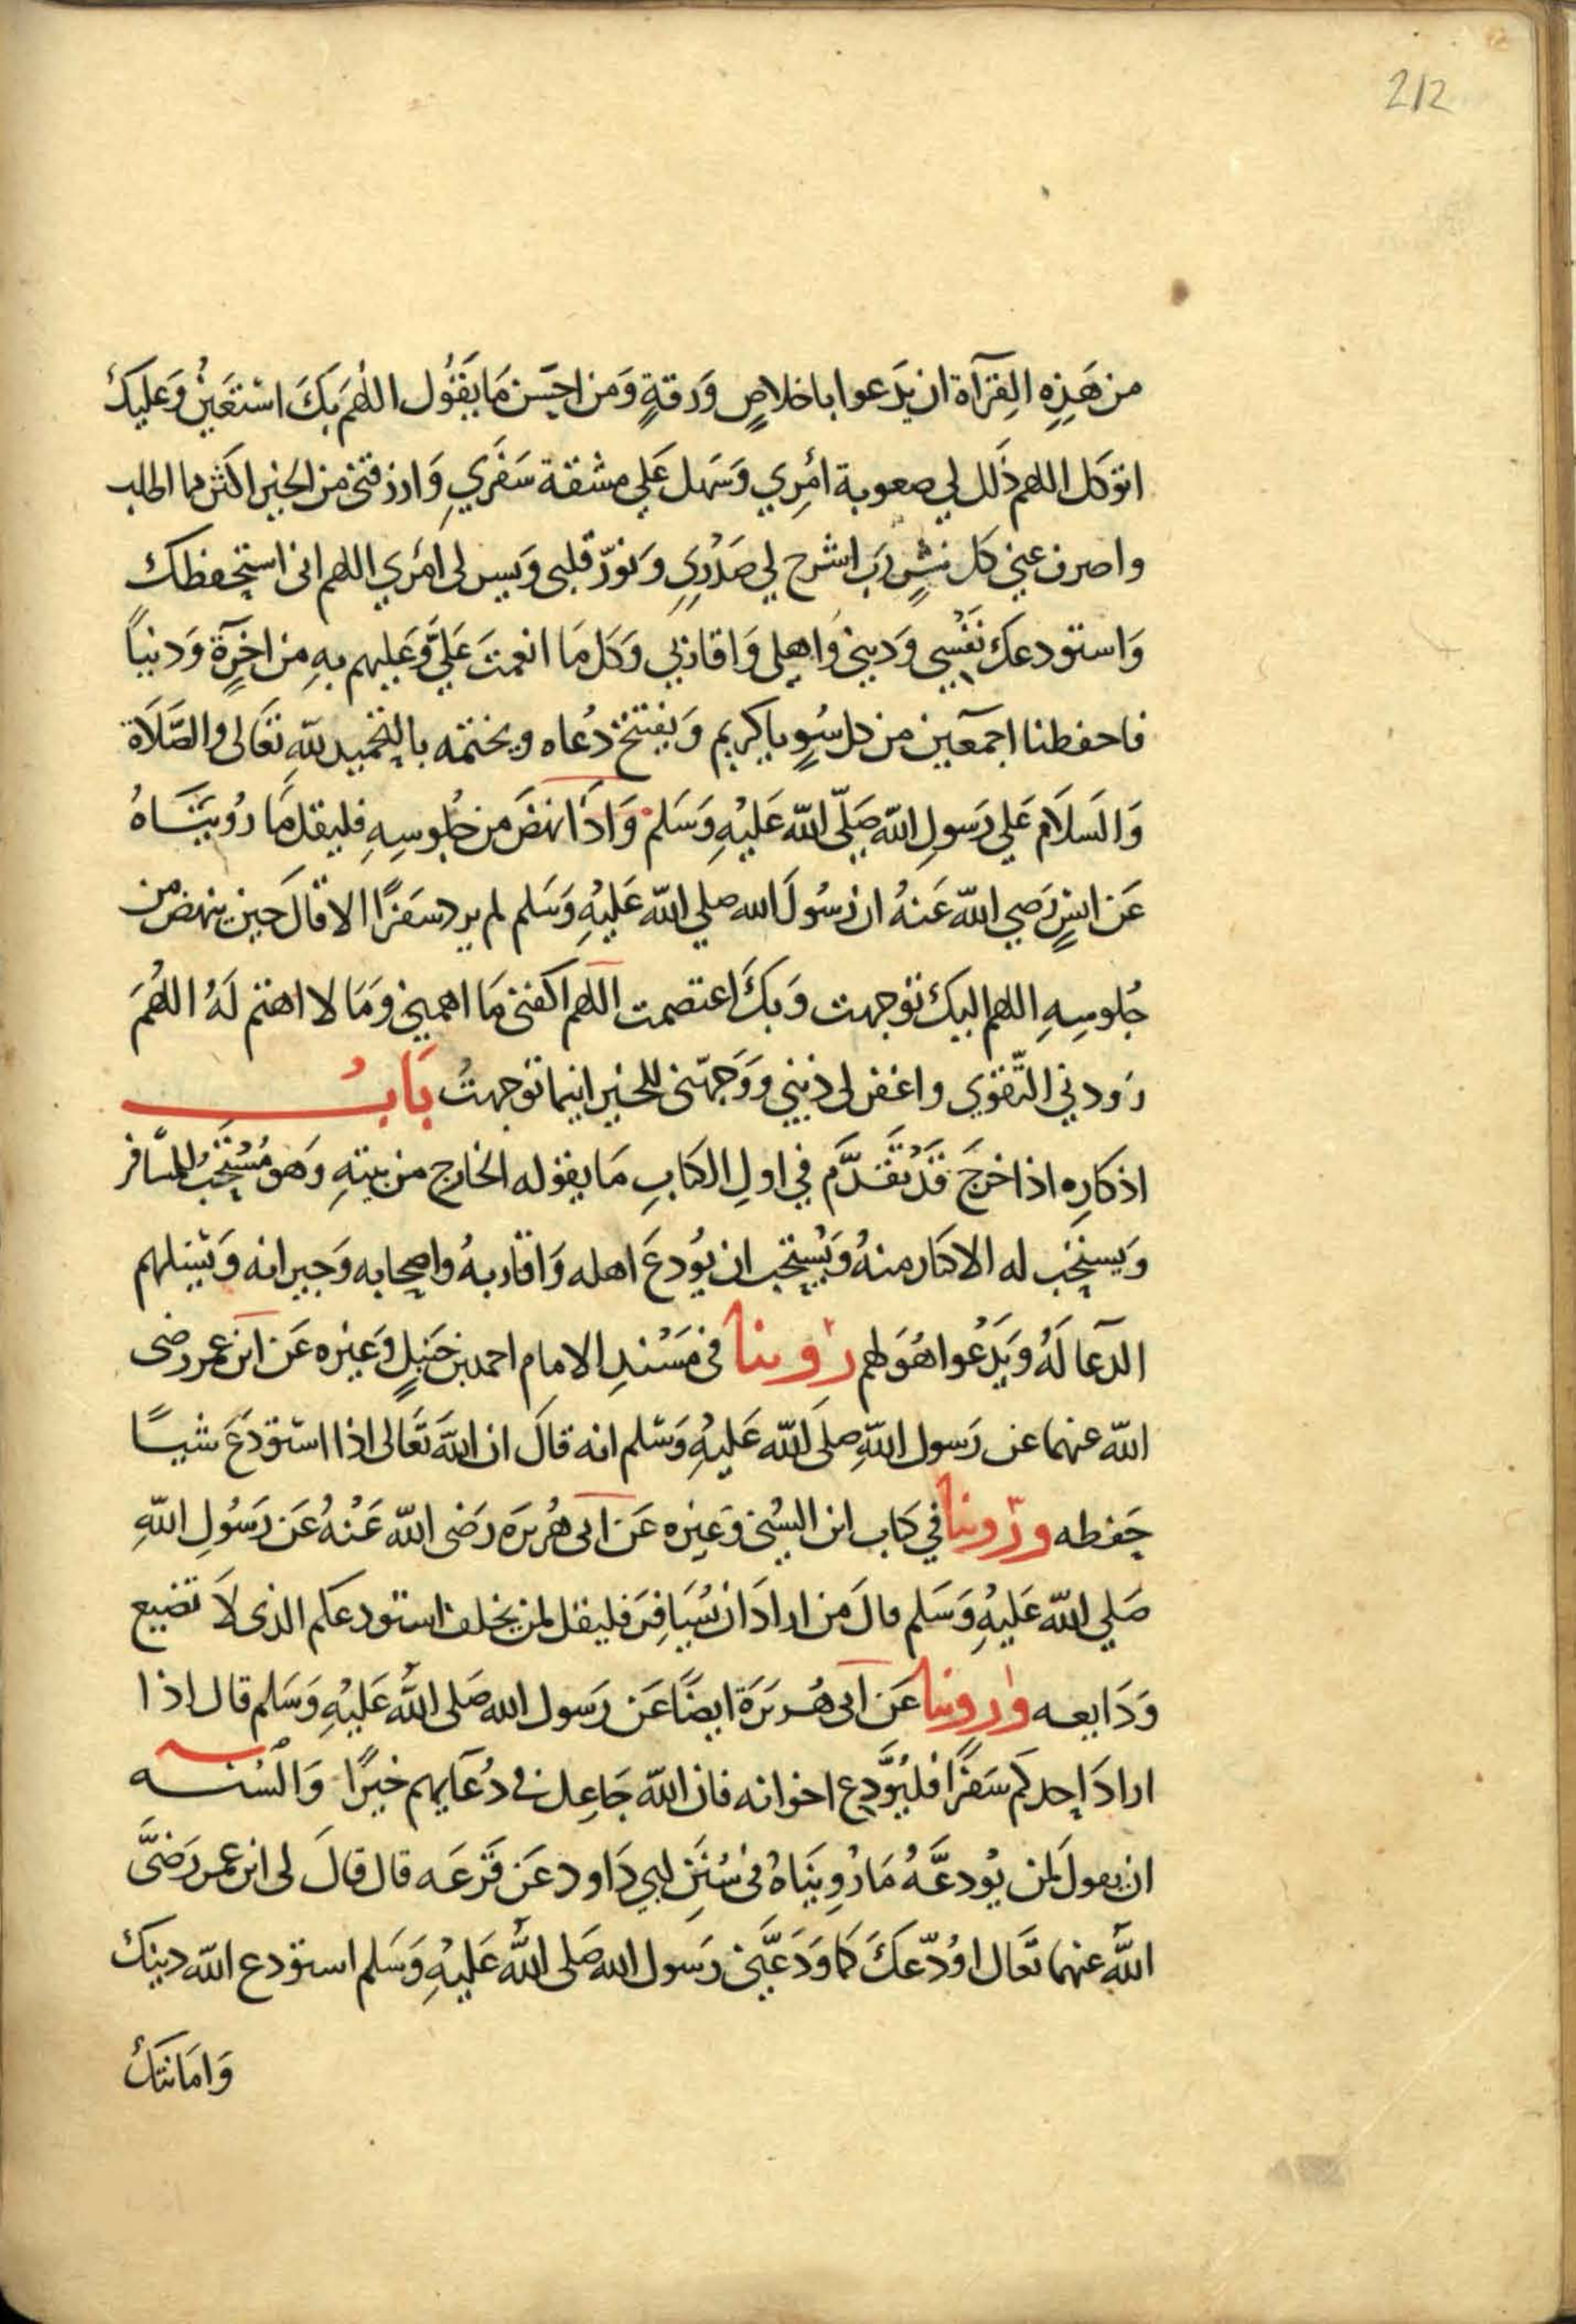 212
من هَذِهِ القِرَآة ان يَدعوا باخلاصٍ وَرقةٍ وَمن احسَن مَا يَقُول اللهُمَ بكَ اسْتَعَينُ وَعَليَكَ
اتوكل اللهم ذَلل لي صعوبة امُرِي وَسَهل عَلى مشقة سَفَري وَارزقني من الخير اكثر مما اطلب
واصرف عني كل شٍر رَب اشرح لي صَدْري وَنوّر قلبى وَيسر لى امُري اللهم انى استحفظك
وَاستودعكَ نَفْسِي وَديني وَاهلى وَاقاربي وَكل مَا انعمتَ عَليَّ وَعَليهم بهِ من اخرَةٍ وَدنياً
فاحفطنا اجمَعين من كل سُوٍ يا كريم وَيفتتح دُعاه ويختمه بالتحميد للّهِ تعَالى والصَّلاَة
وَالسَلاَم عَلي رَسولِ اللّه صَلّى اللّه عَليْهِ وَسَلم وَاذَا نهضَ من جُلوسِهِ فليقل مَا رُوينَاهُ
عَن انسٍ رَضي اللّه عَنهُ ان رَسُولَ الله صلي اللّه عَليْهِ وَسَلم لم يرد سفَرًا الا قالَ حين ينهض من
جُلوسِهِ اللهم اليك توجهت وَبكَ اعتصمت اللهم اكفني مَا اهمني وَمَا لا اهتم لَهُ اللهُمَ
زودني التّقوي واغفر لى ذنبي وَوَجهّني للخير اينما توجهتُ بَابُ
اذكارِه اذا خرجَ قَدْ تقَدَّم في اولِ الكتابِ مَا يقوله الخارج من بيتهِ وَهو مُسْتَحبُ للمسَافر
وَيستحَب له الاكثار منهُ وَيُستحَب ان يُودعَ اهله وَاقاربهُ واصحابه وَجيرانه وَيسَلهم
الدعَا لَهُ وَيَدْعُوا هُوَ لهم رُوينا فى مَسْندِ الامام احمد بن حَنبلٍ وَغيره عَن ابن عمر رضى
اللّه عنهما عن رَسول اللّهِ صلَى اللّه عَليْهِ وَسَلم انه قالَ ان اللّهَ تعَالى اذا استودَعَ شيئًا
حَفطه ورُوينا في كتاب ابن السُني وَغيره عَن ابى هُريرَه رَضى اللّه عَنْهُ عَن رَسُولِ اللّهِ
صَلي اللّه عَليْهِ وَسَلم قالَ مَن ارادَ ان يُسَافِر فليقل لمن يخلف استودعكم الذى لاَ تضيع
وَدَايعه ورُوينا عَن ابى هُريرَة ايضًا عَن رَسول الله صَلى اللّه عَليْهِ وَسَلم قال اذا
ارادَ احدكم سَفَرًا فليُوَدِّع اخوانه فان اللّه جَاعِل فى دُعَايهم خيرًا وَالسُنه
ان يقولَ لمن يُودعَّهُ مَا رُوينَاهُ فى سُنَنِ ابي دَاود عَن قَزعَه قال قالَ لى ابن عمر رَضيَ
اللّه عنهما تعَال اوُدّعكَ كمَا وَدَعَّنى رَسول الله صَلى اللّه عَليْهِ وَسَلم استودع اللّه دينك
وَامَانتكَ